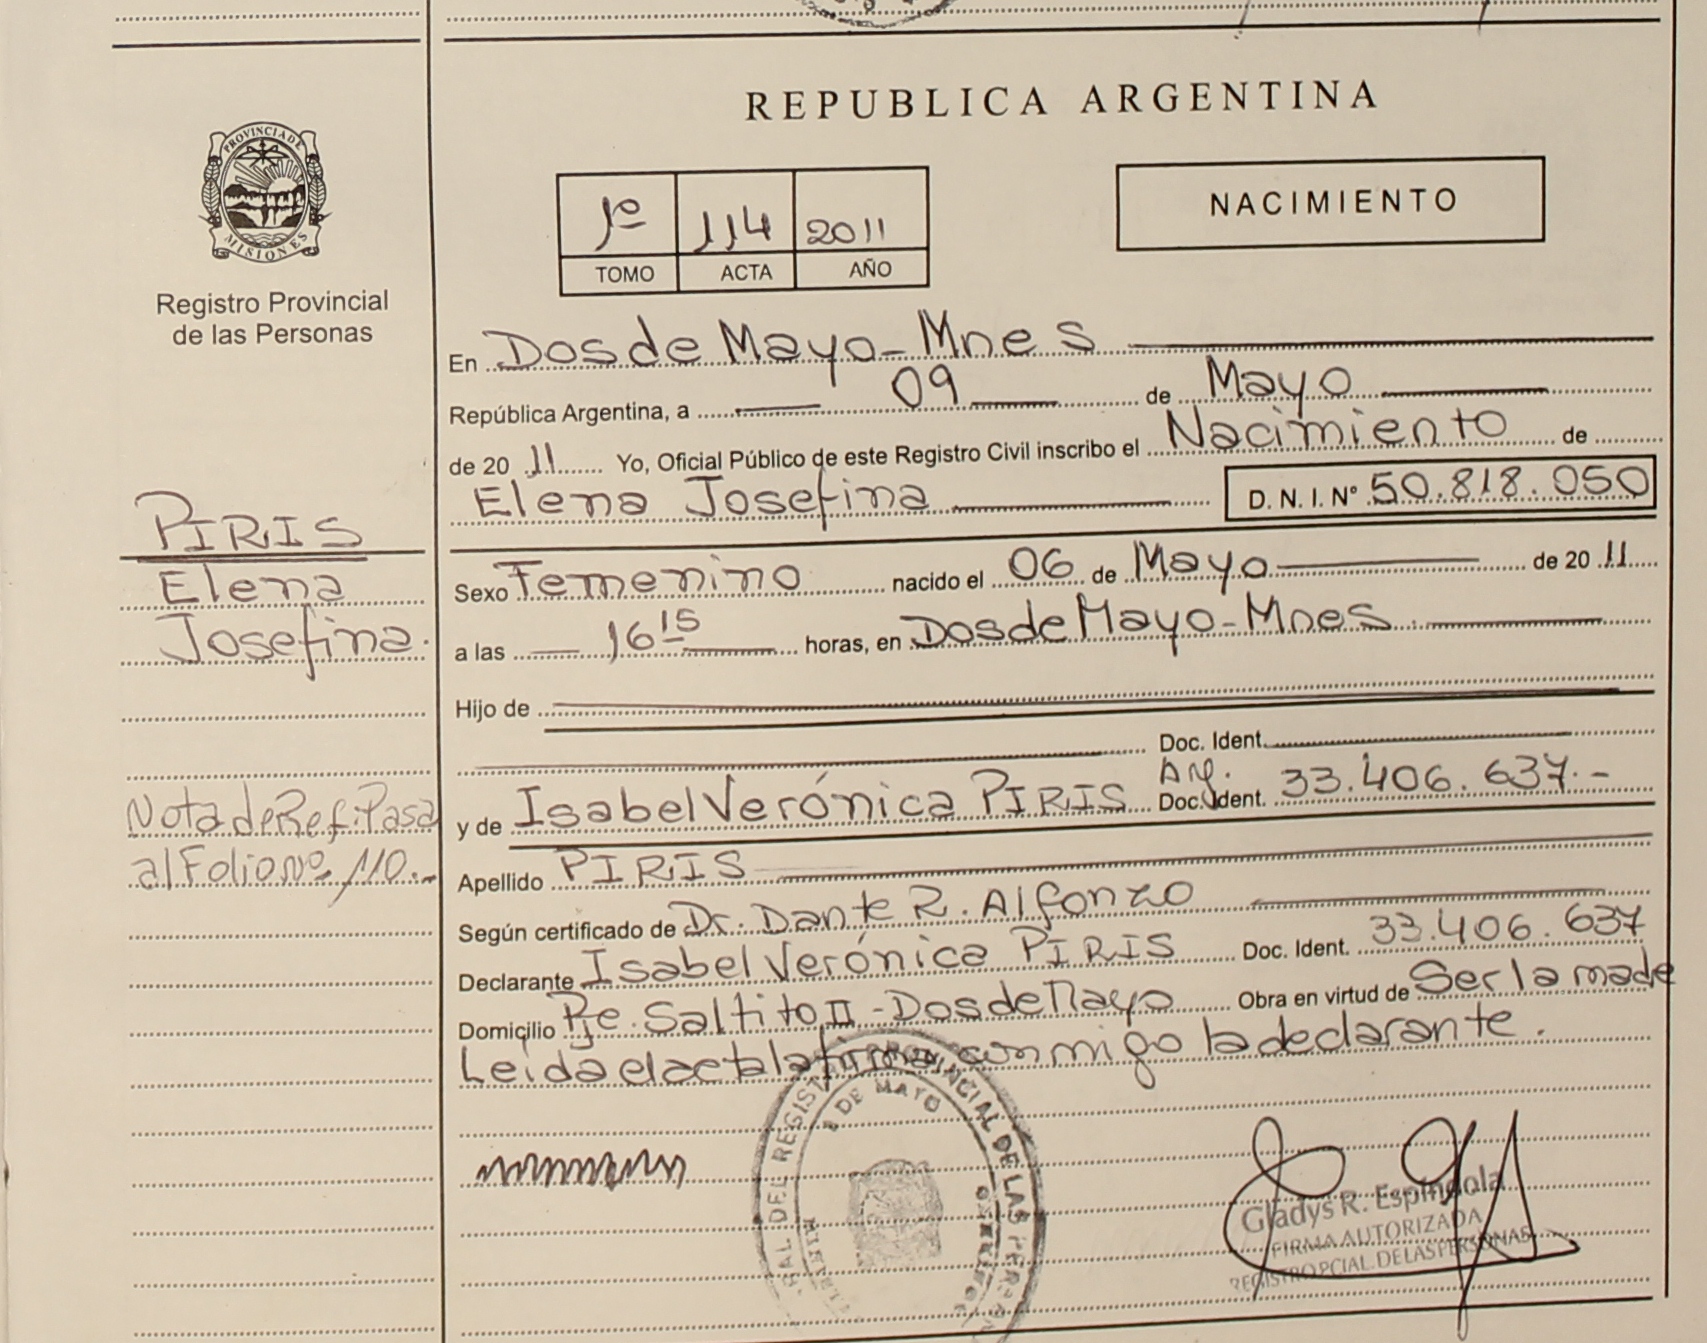 REPUBLICA ARGENTINA
PROVINCIA DE
MISIONES
Registro Provincial
de las Personas
1º 114 2011
TOMO ACTA AÑO
NACIMIENTO
En Dos de Mayo - Mnes
República Argentina, a 09 de Mayo
de 20 11 Yo, Oficial Público de este Registro Civil inscribo el Nacimiento de
Elena Josefina D. N. I. Nº 50.818.050
PIRIS
Elena
Josefina.
Sexo Femenino nacido el 06 de Mayo de 20 11
a las 16 15 horas, en Dos de Mayo - Mnes.
Hijo de
Doc. Ident.
Arg.
y de Isabel Verónica PIRIS Doc. Ident. 33.406.637.-
Nota de Ref: Pasa
al Folio Nº 110.-
Apellido PIRIS
Según certificado de Dr. Dante R. Alfonzo
Declarante Isabel Verónica PIRIS Doc. Ident. 33.406.637
Domicilio Pje. Saltito II - Dos de Mayo Obra en virtud de Ser la made
Leida el acta la firma conmigo la declarante.
REGISTRO PROVINCIAL DE LAS
DE MAYO
Gladys R. Espindola
FIRMA AUTORIZADA
REGISTRO PCIAL. DE LAS PERSONAS